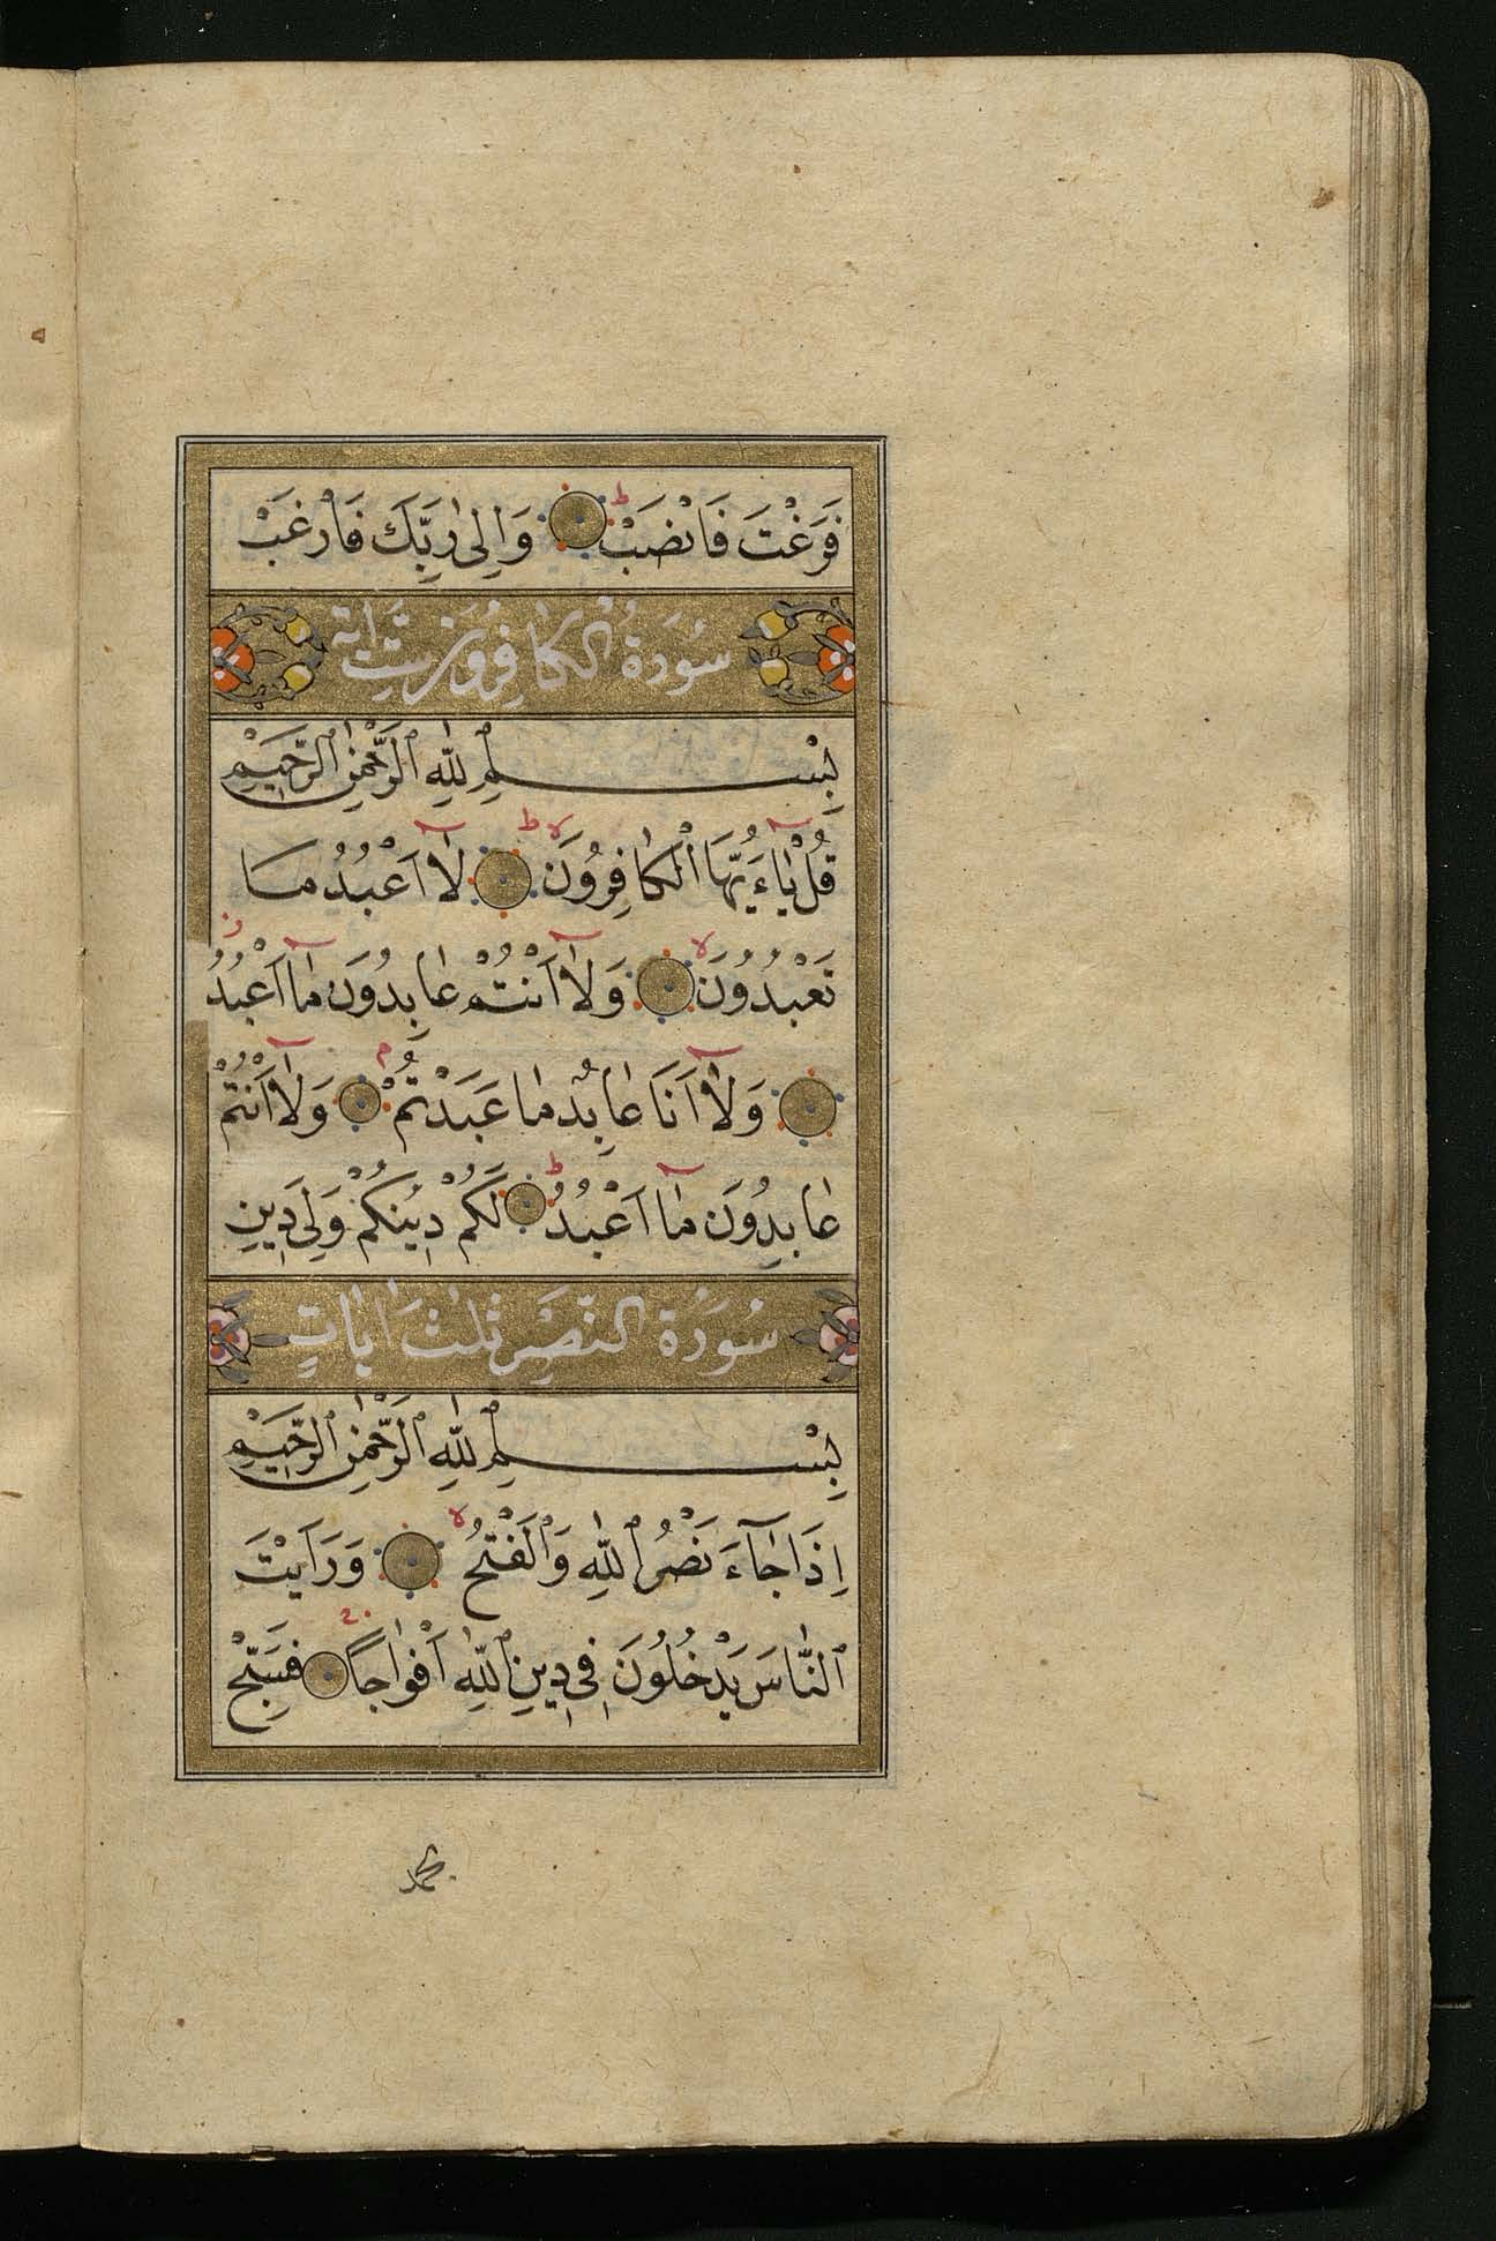 فَرَغْتَ فَانْصَبْ ۙ وَاِلٰى رَبِّكَ فَارْغَبْ
سُورَةُ الْكَافِرُونَ سِتُّ اٰيَة
بِسْمِ اللّٰهِ الرَّحْمٰنِ الرَّحِيمِ
قُلْ يٰاءَيُّهَا الْكٰافِرُونَ لا ط لٰٓا اَعْبُدُ مَا
تَعْبُدُونَ لا وَلٰٓا اَنْتُمْ عٰابِدُونَ مٰٓا اَعْبُدُ
وَلٰٓا اَنَا۬ عٰابِدٌ مٰا عَبَدْتُمْ م وَلٰٓا اَنْتُمْ
عٰابِدُونَ مٰٓا اَعْبُدُ ط لَكُمْ دِينُكُمْ وَلِىَ دِينِ
سُورَةُ النَّصْرِ ثَلٰثُ اٰيٰاتٍ
بِسْمِ اللّٰهِ الرَّحْمٰنِ الرَّحِيمِ
اِذَا جٰٓاءَ نَصْرُ اللّٰهِ وَالْفَتْحُ لا وَرَاَيْتَ
النّٰاسَ يَدْخُلُونَ فِى دِينِ اللّٰهِ اَفْوٰاجًا فَسَبِّحْ